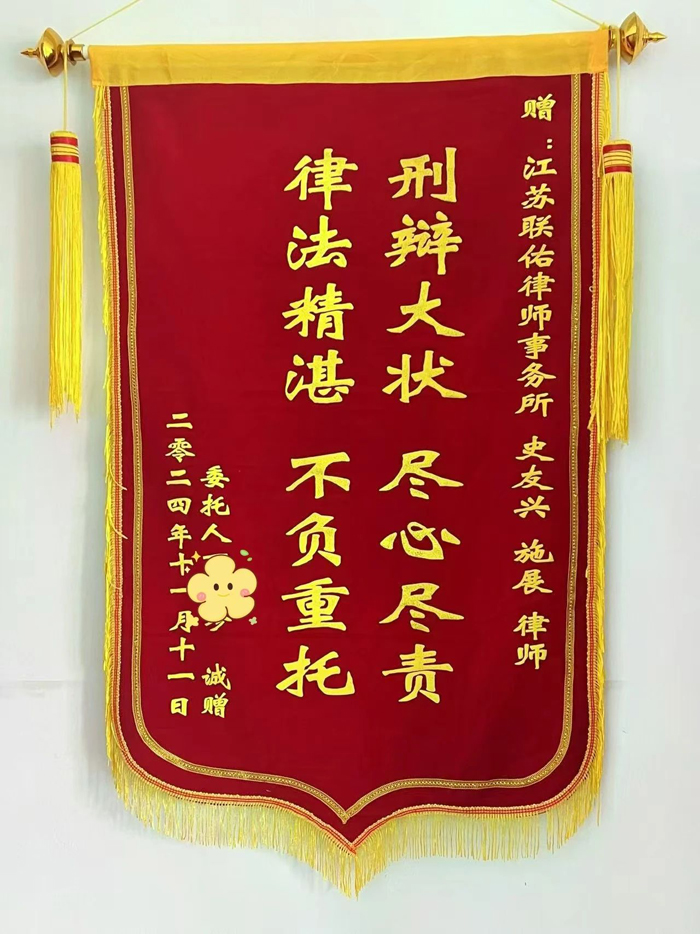 赠：江苏联佑律师事务所 史友兴 施展 律师
刑辩大状 尽心尽责
律法精湛 不负重托
委托人 诚赠
二零二四年十一月十一日